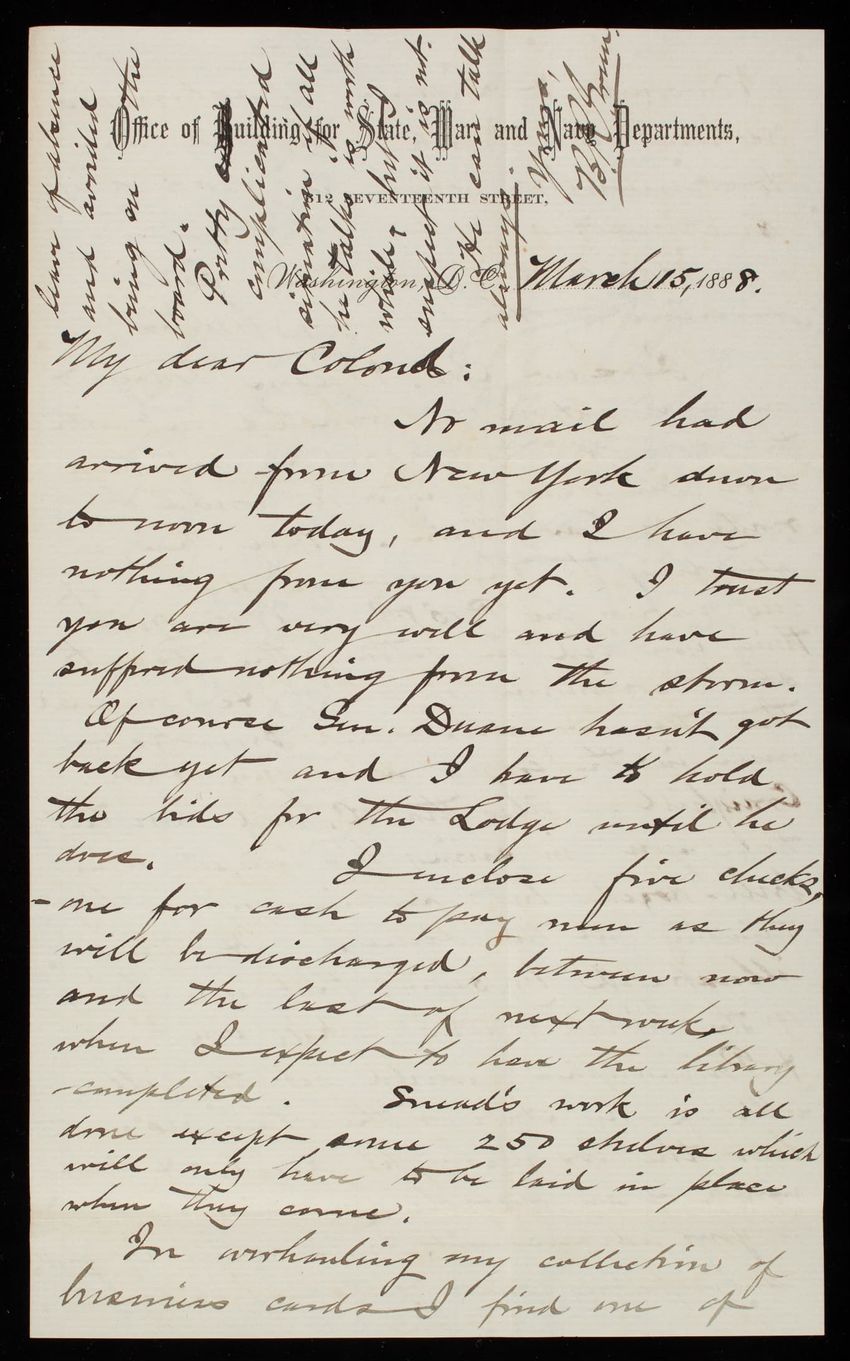 Office of Building for State, War, and Navy Departments,
512 SEVENTEENTH STREET,
Washington, D.C. March 15, 1888.
My dear Colonel:
No mail had
arrived from New York down
to noon today, and I have
nothing from you yet. I trust
you are very well and have
suffered nothing from the storm.
Of course Gen. Duane hasn't got
back yet and I have to hold
the bids for the Lodge until he
does. I enclose five checks,
- one for cash to pay men as they
will be discharged, between now
and the last of next week,
when I expect to have the library
completed. Snead's work is all
done except some 250 shelves which
will only have to be laid in place
when they come.
In overhauling my collection of
business cards I find one of
leave of absence
and avoided
being on the
board.
Pretty
complicated
situation if all
he talks is worth
while, but I
suspect it is not.
He can talk
always.
Yours,
B. R. Green.